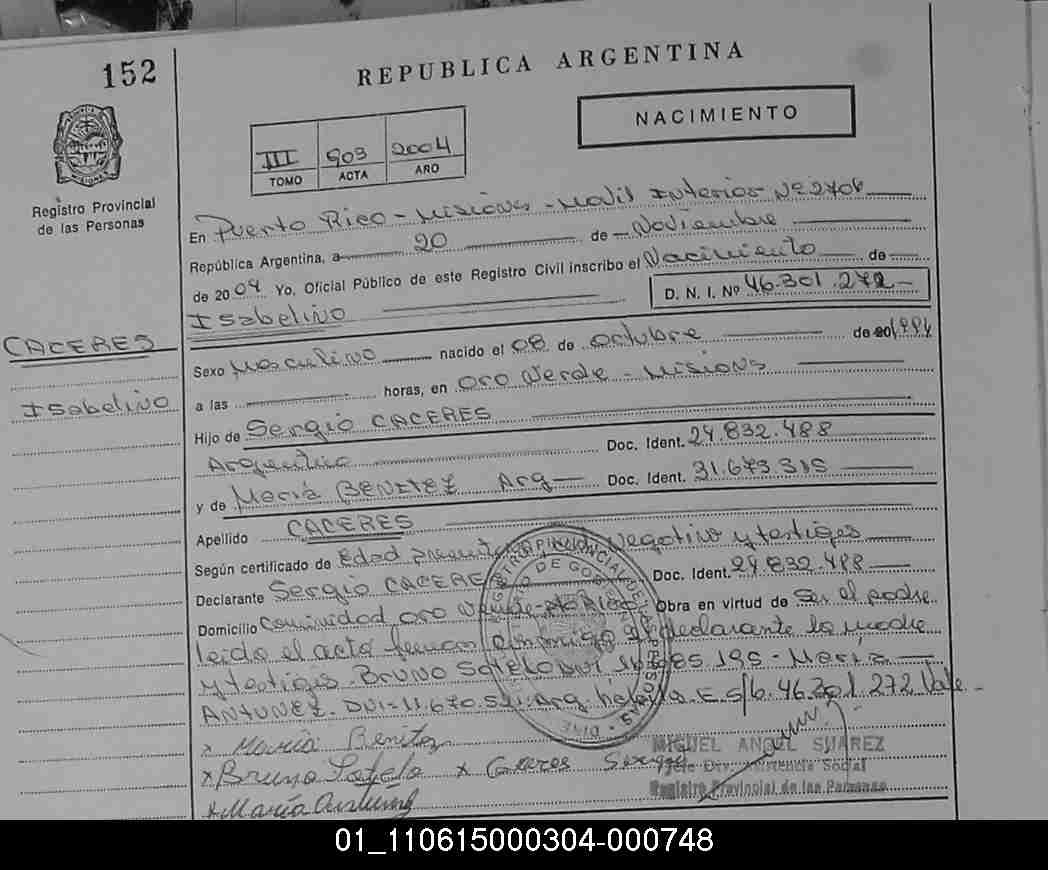 152
REPUBLICA ARGENTINA
NACIMIENTO
III 903 2004
TOMO ACTA AÑO
Registro Provincial
de las Personas
En Puerto Rico - Misiones - Movil Interior Nº 2706
República Argentina, a 20 de Noviembre
de 2004 Yo, Oficial Público de este Registro Civil inscribo el Nacimiento de
Isabelino D. N. I. Nº 46.301.272
CACERES
Isabelino
Sexo Masculino nacido el 08 de octubre de 1994
a las horas, en Oro Verde - Misions
Hijo de Sergio CACERES
Argentino Doc. Ident. 29.832.488
y de Maria BENITEZ Arg Doc. Ident. 31.673.315
Apellido CACERES
Según certificado de Edad Negativo y testigos
Declarante Sergio CACERE Doc. Ident. 29.832.488
Domicilio Comunidad Oro Verde - Pto Rico Obra en virtud de Ser el padre
leido el acta firman conmigo el declarante la madre
y testigos Bruno Sotelo DNI 195 - Maria
ANTUNEZ - DNI = 11.670. Arg. E. S/b. 46.301.272 Vale
x Maria Benitez
x Bruno Sotelo x Caceres Sergio
x Maria Antunez
MIGUEL ANGEL SUAREZ
Jefe Div. Asistencia Social
Registro Provincial de las Personas
01_110615000304-000748